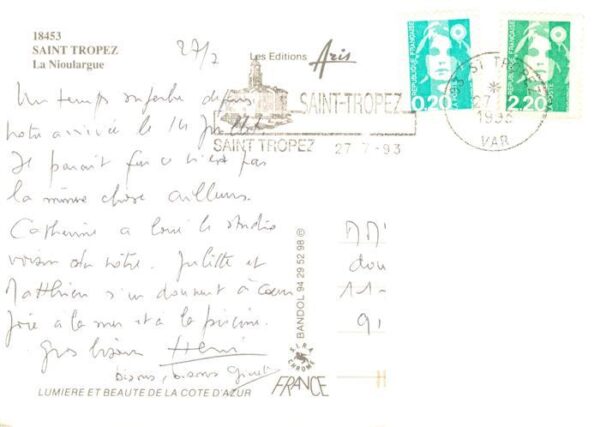 18453
SAINT TROPEZ
La Nioulargue
27/7
Les Editions Aris
REPUBLIQUE FRANÇAISE
0,20
REPUBLIQUE FRANÇAISE
2,20
SAINT-TROPEZ
SAINT TROPEZ 27 7-93
93 ST TROPEZ
27 7
1993
VAR
Un temps superbe depuis
notre arrivée le 14 juillet.
Il paraît que ce n'est pas
la même chose ailleurs.
Catherine a loué le studio
voisin du nôtre. Juliette et
Matthieu s'en donnent à coeur
joie à la mer et à la piscine.
Gros bisous Henri
bisous, bisous
BANDOL 94 29 52 98 ©
MM
dou
11-
91
FRANCE
LUMIERE ET BEAUTE DE LA COTE D'AZUR